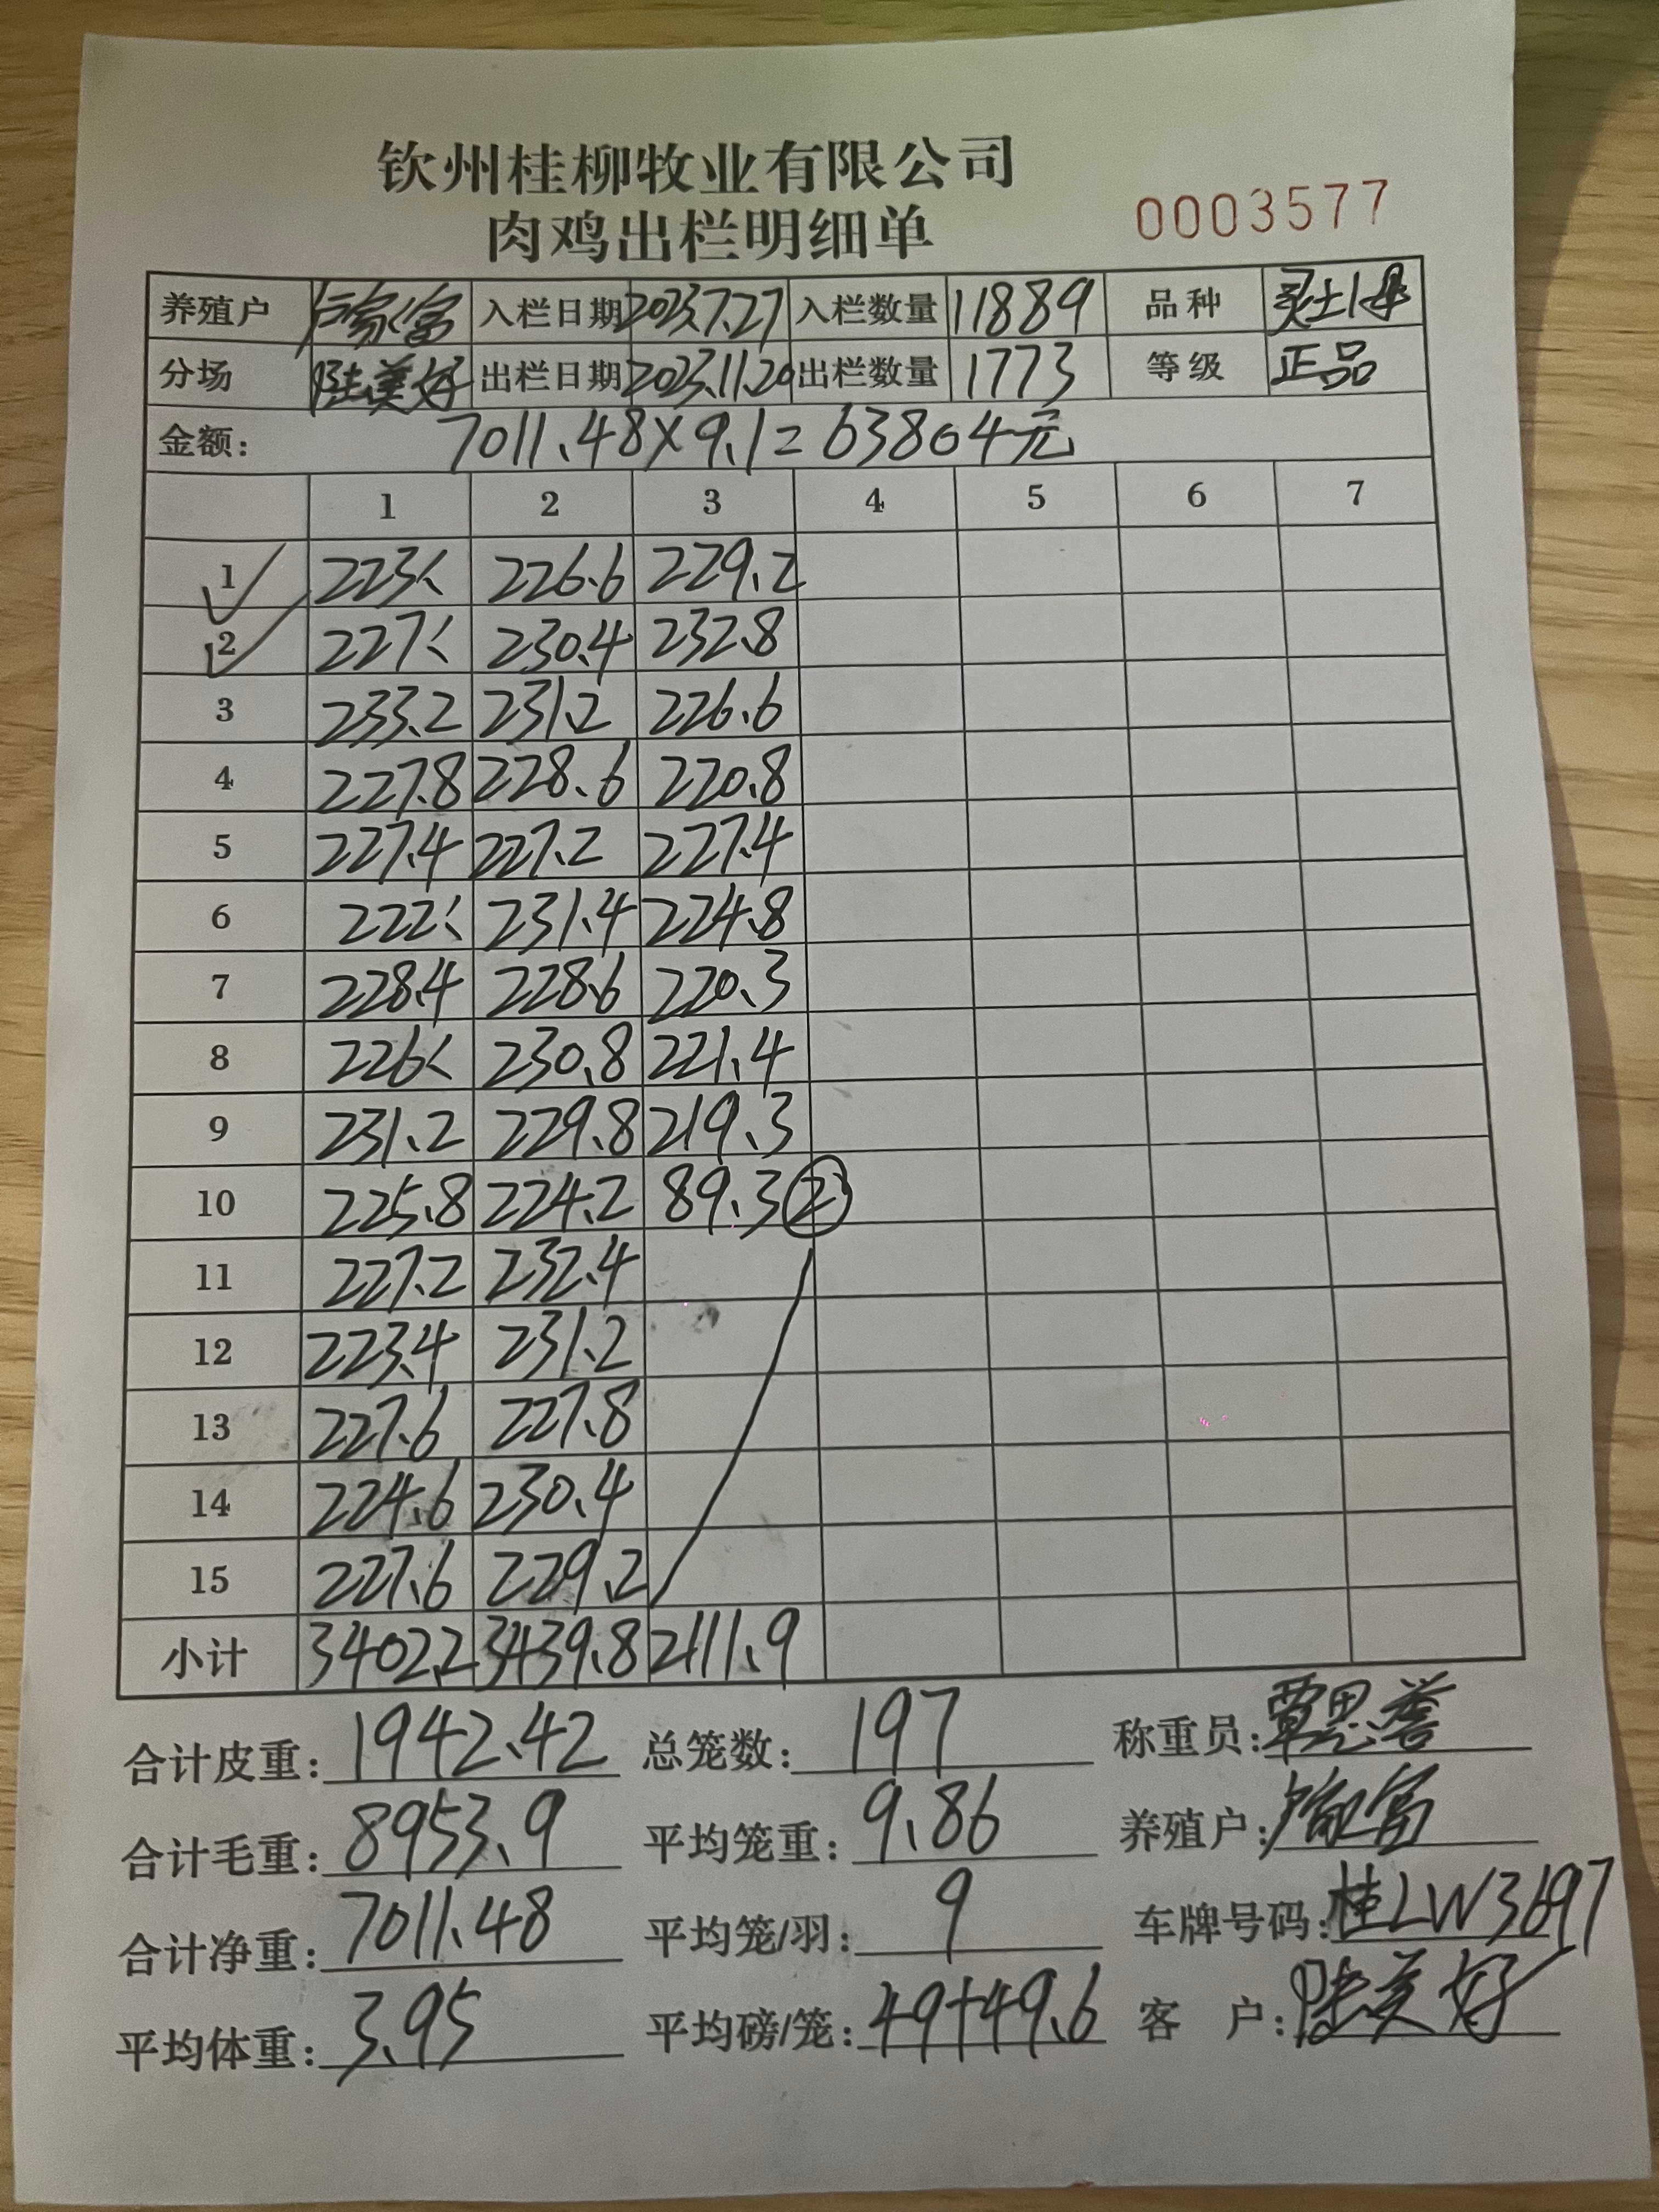 钦州桂柳牧业有限公司
肉鸡出栏明细单
0003577
养殖户 入栏日期 2023.7.27 入栏数量 11889 品种
分场 陆美好 出栏日期 2023.11.20 出栏数量 1773 等级 正品
金额: 7011.48×9.1=63804元
1 2 3 4 5 6 7
1 223< 226.6 229.2
2 227< 230.4 232.8
3 233.2 231.2 226.6
4 227.8 228.6 220.8
5 227.4 227.2 227.4
6 222< 231.4 224.8
7 228.4 228.6 220.3
8 226< 230.8 221.4
9 231.2 229.8 219.3
10 225.8 224.2 89.3 ②
11 227.2 232.4
12 223.4 231.2
13 227.6 227.8
14 224.6 230.4
15 227.6 229.2
小计 3402.2 3439.8 2111.9
合计皮重: 1942.42 总笼数: 197 称重员: 覃思誉
合计毛重: 8953.9 平均笼重: 9.86 养殖户:
合计净重: 7011.48 平均笼/羽: 9 车牌号码: 桂LW3697
平均体重: 3.95 平均磅/笼: 49+49.6 客 户: 陆美好